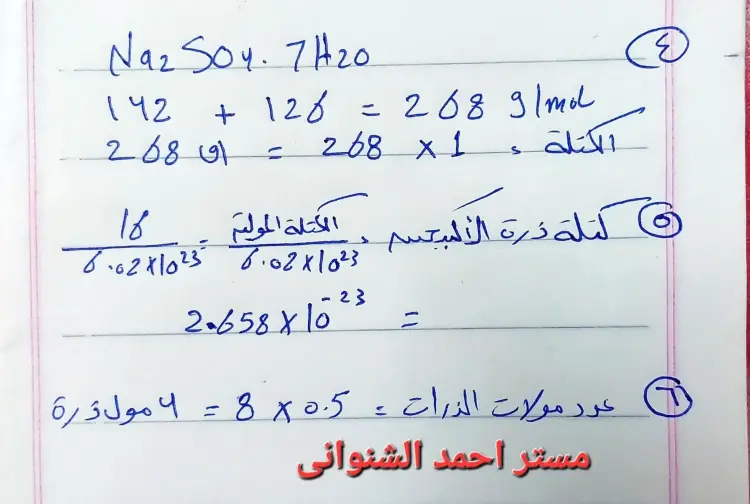 ٤ Na2SO4. 7H2O
142 + 126 = 268 g/mol
الكتلة = 1 × 268 = 268 جم
٥ كتلة ذرة الأكسجين = الكتلة المولية / 6.02×10²³ = 16 / 6.02×10²³
= 2.658×10⁻²³
٦ عدد مولات الذرات = 0.5 × 8 = 4 مول ذرة
مستر احمد الشنوانى